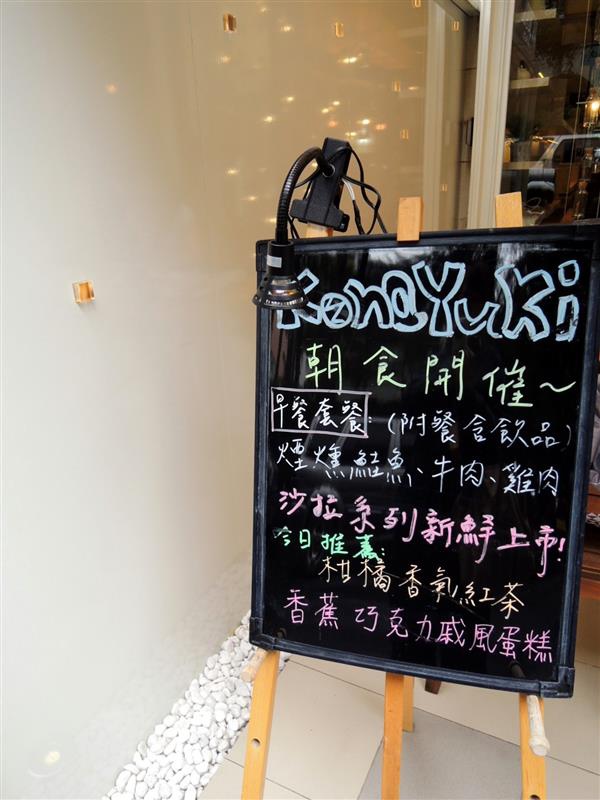 KonaYuki
朝食開催～
早餐套餐:(附餐含飲品)
煙燻鮭魚、牛肉、雞肉
沙拉系列新鮮上市!
今日推薦:
柑橘香氣紅茶
香蕉巧克力戚風蛋糕